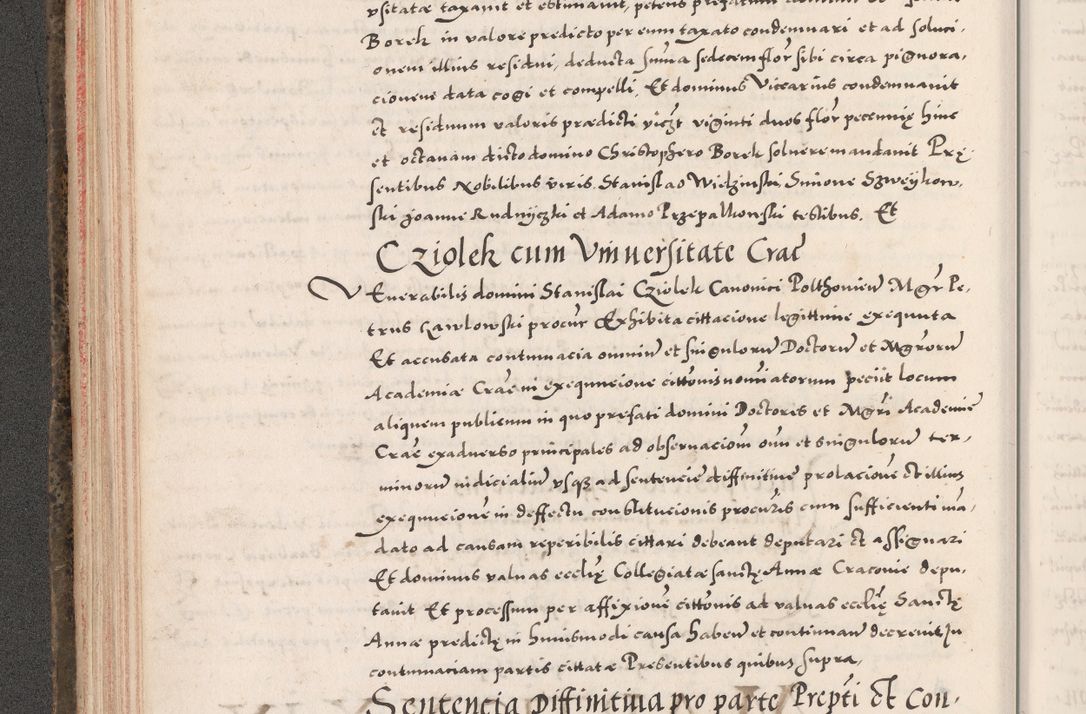 vsitatæ taxauit et estimauit, petens prefatum
Borek in valore predicto per eum taxato condemnari et ad soluci-
onem illius residui, deducta suma sedecem flor sibi circa pignora-
cionem data cogi et compelli. Et dominus Viccarius condemnauit
et residuum valoris prædicti viczt viginti duos flor pecunię hinc
et octauam dicto domino Christophero Borek soluere mandauit Prę-
sentibus Nobilibus viris. Stanislao Wielzinski, Simone Szweykow-
ski Joanne Rudnyczki et Adamo Przepalkowski testibus. Et
Cziolek cum Vniuersitate Crac
VEnerabilis domini Stanislai Cziolek Canonici Polthouien Mgr Pe-
trus Kawlowski procur Exhibita cittacione legittime exequuta
Et accusata contumacia omniu et singuloru Doctoru et Mgroru
Academiæ Cracen in exequucione cittonis nominatorum peciit locum
aliquem publicum in quo præfati domini Doctores et Mgri Academie
Crac ex aduerso principales ad obseruaciom oim et singuloru ter-
minoru iudicialiu vsqz ad sentencie diffinitiue prolacione et illius
exequucione in deffectu constitucionis procuris cum sufficienti ma-
dato ad causam reperibilis cittari debeant deputari et assignari
Et dominus valuas ecclię Collegiatæ sanctę Annæ Cracouie depu-
tauit Et processum per affixione cittonis ad valuas ecclię Sanctę
Annæ predictę in huiusmodi causa haben et continuan decreuit In
contumaciam partis cittatæ Presentibus quibus supra,
Sentencia Diffinitiua pro parte Prepti et Con-